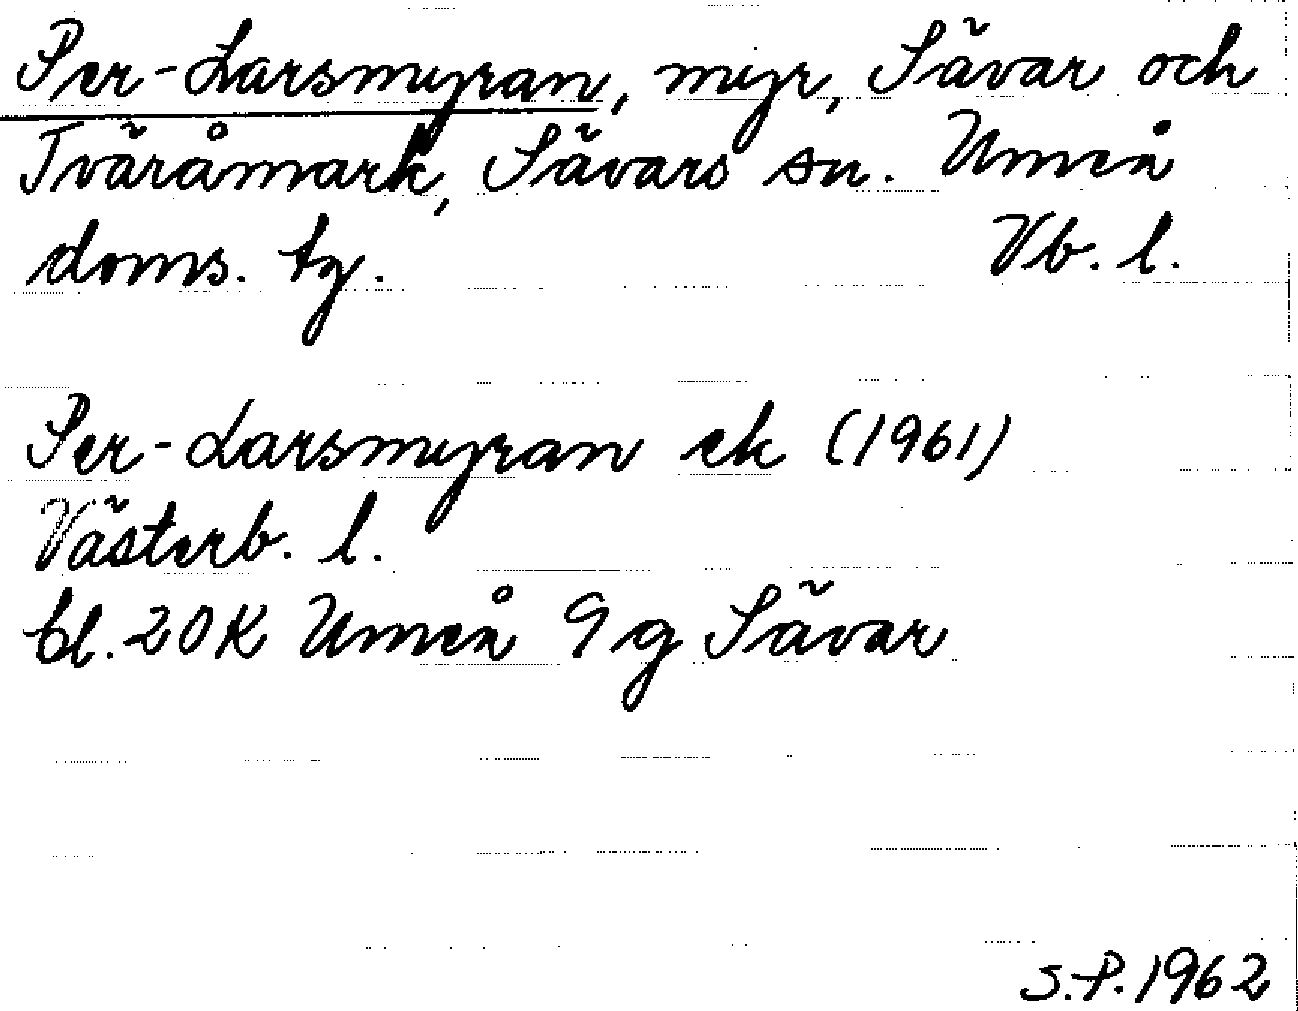 Per-Larsmyran, myr, Sävar och
Tväråmark, Sävars sn. Umeå
doms. tg. Vb. l.
Per-Larsmyran ek (1961)
Västerb. l.
bl. 20K Umeå 9g Sävar
S.P. 1962